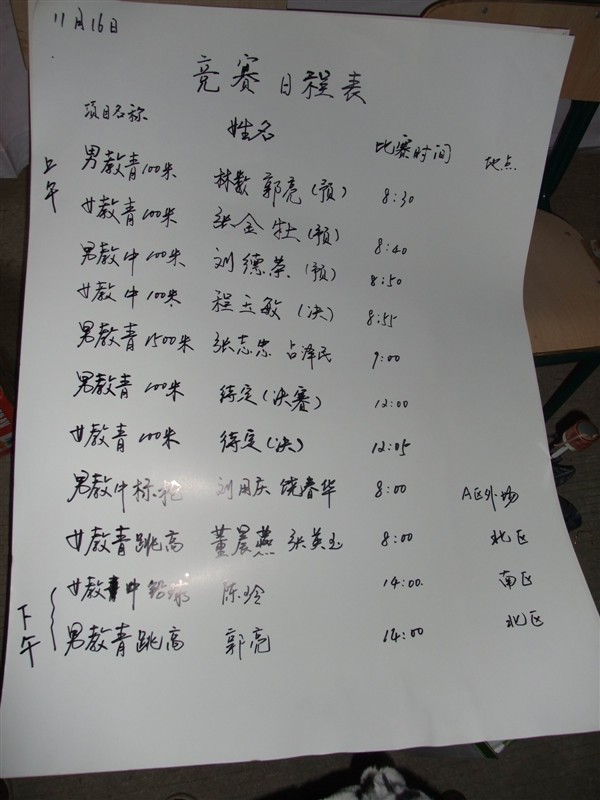 11月16日
竞赛日程表
项目名称 姓名 比赛时间 地点
上午
男教青100米 林数 郭亮(预) 8:30
女教青100米 张金牡(预) 8:40
男教中100米 刘德荣(预) 8:50
女教中100米 程玉敏(决) 8:55
男教青1500米 张志忠 占泽民 9:00
男教青100米 待定(决赛) 12:00
女教青100米 待定(决) 12:05
男教中标枪 刘用庆 饶春华 8:00 A区外场
女教青跳高 董晨燕 张英玉 8:00 北区
下午
女教中铅球 陈玲 14:00. 南区
男教青跳高 郭亮 14:00 北区